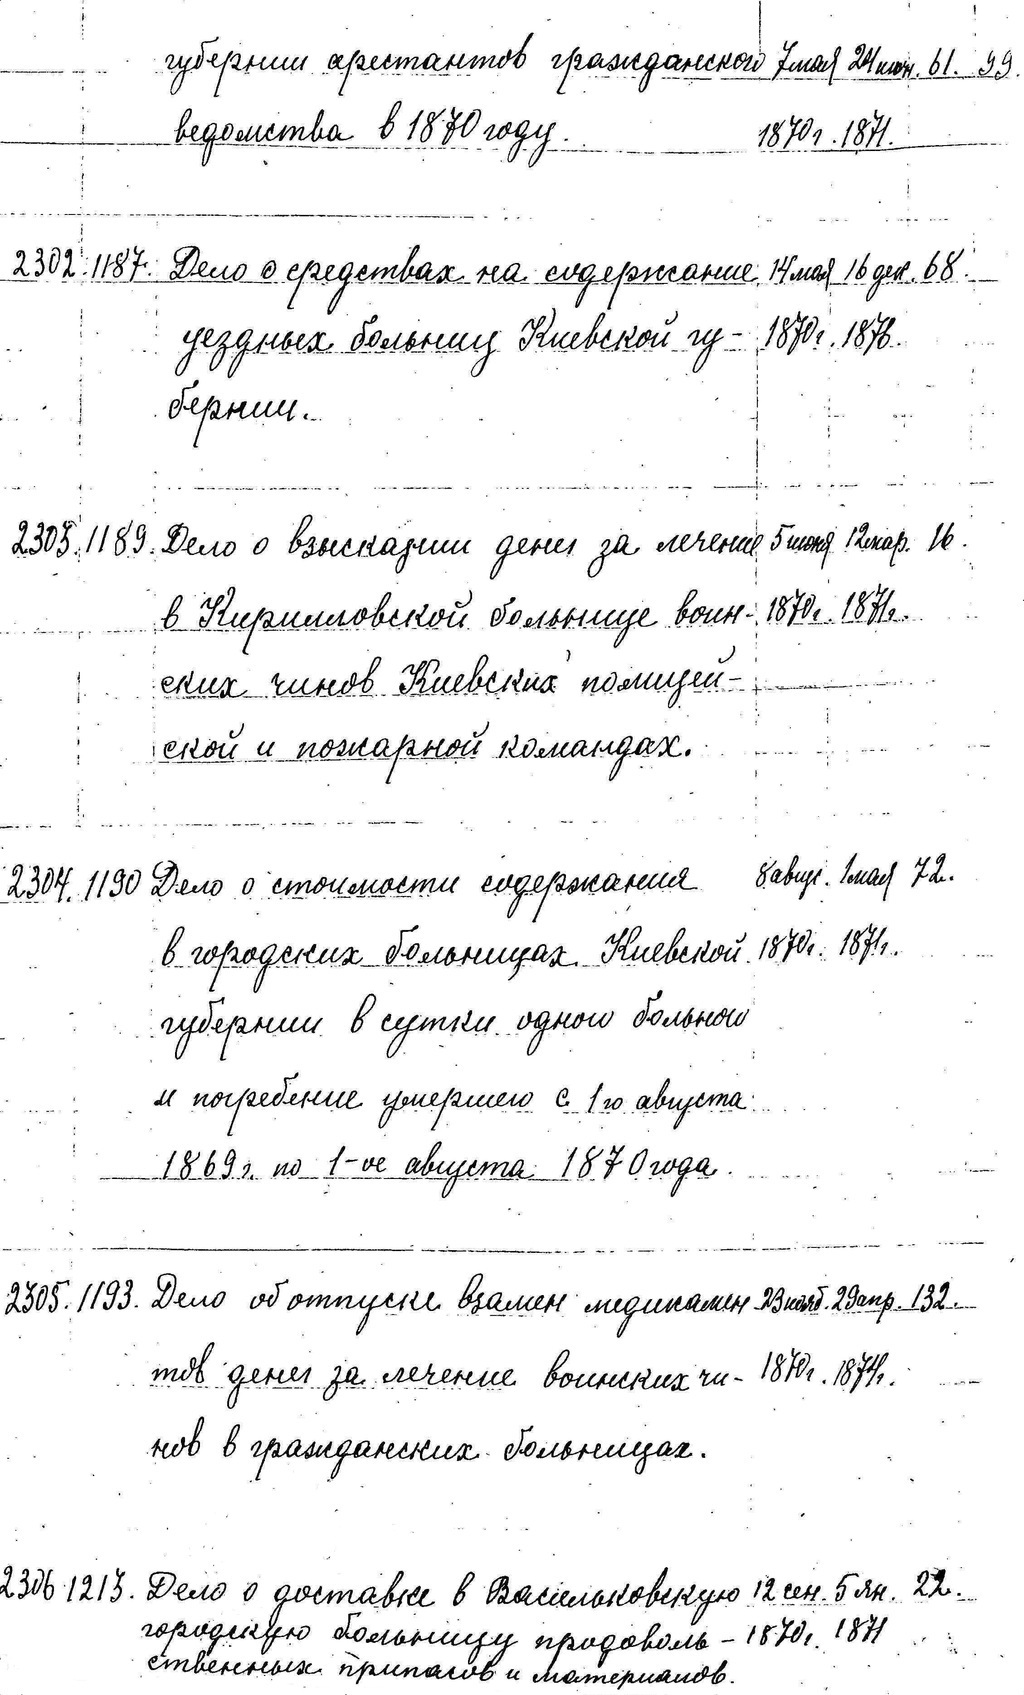 губернии арестантов гражданского 7 мая 24 июн. 61. 99.
ведомства в 1870 году. 1870 г. 1871.
2302. 1187. Дело о средствах на содержание 14 мая 16 дек. 68.
уездных больниц Киевской гу- 1870 г. 1876.
бернии.
2303. 1189. Дело о взыскании денег за лечение 5 июня 12 мар. 16.
в Кирилловской больнице воин- 1870 г. 1871 г.
ских чинов Киевских полицей-
ской и пожарной командах.
2304. 1190 Дело о стоимости содержания 8 авгус. 1 мая 72.
в городских больницах Киевской 1870 г. 1871 г.
губернии в сутки одного больного
и погребение умершего с 1 го августа
1869 г. по 1-ое августа 1870 года.
2305. 1193. Дело об отпуске взамен медикамен 23 нояб. 29 апр. 132.
тов денег за лечение воинских чи- 1870 г. 1874 г.
нов в гражданских больницах.
2306 1213. Дело о доставке в Васильковскую 12 сен. 5 ян. 22.
городскую больницу продоволь- 1870 г. 1871
ственных припасов и материалов.